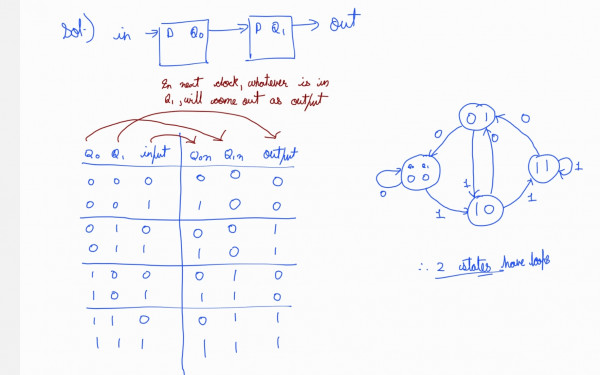 Sol:-) in → D Q0 → D Q1 → out
In next clock, whatever is in
Q1, will come out as output
Q0 Q1 input Q0n Q1n output
0 0 0 0 0 0
0 0 1 1 0 0
0 1 0 0 0 1
0 1 1 1 0 1
1 0 0 0 1 0
1 0 1 1 1 0
1 1 0 0 1 1
1 1 1 1 1 1
0 1
0 0
0
1 1 1
Q0 Q1
0 0
0
1
1 0
1
1
∴ 2 states have loops